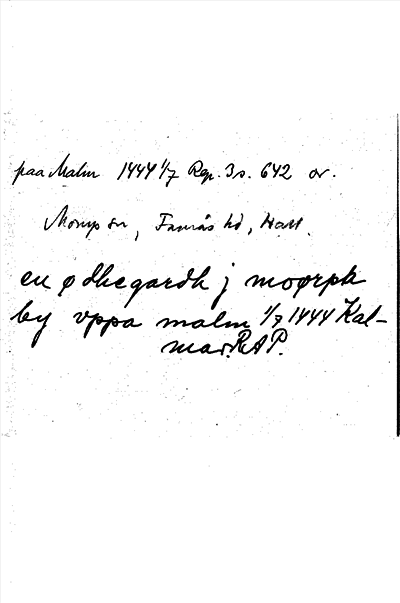 paa Malm 1444 1/7 Rep. 3 s. 642 or.
Morup sn, Faurås hd, Hall.
en ødhegardh j moørph
by vppa malm 1/7 1444 Kal-
mar. RAP.